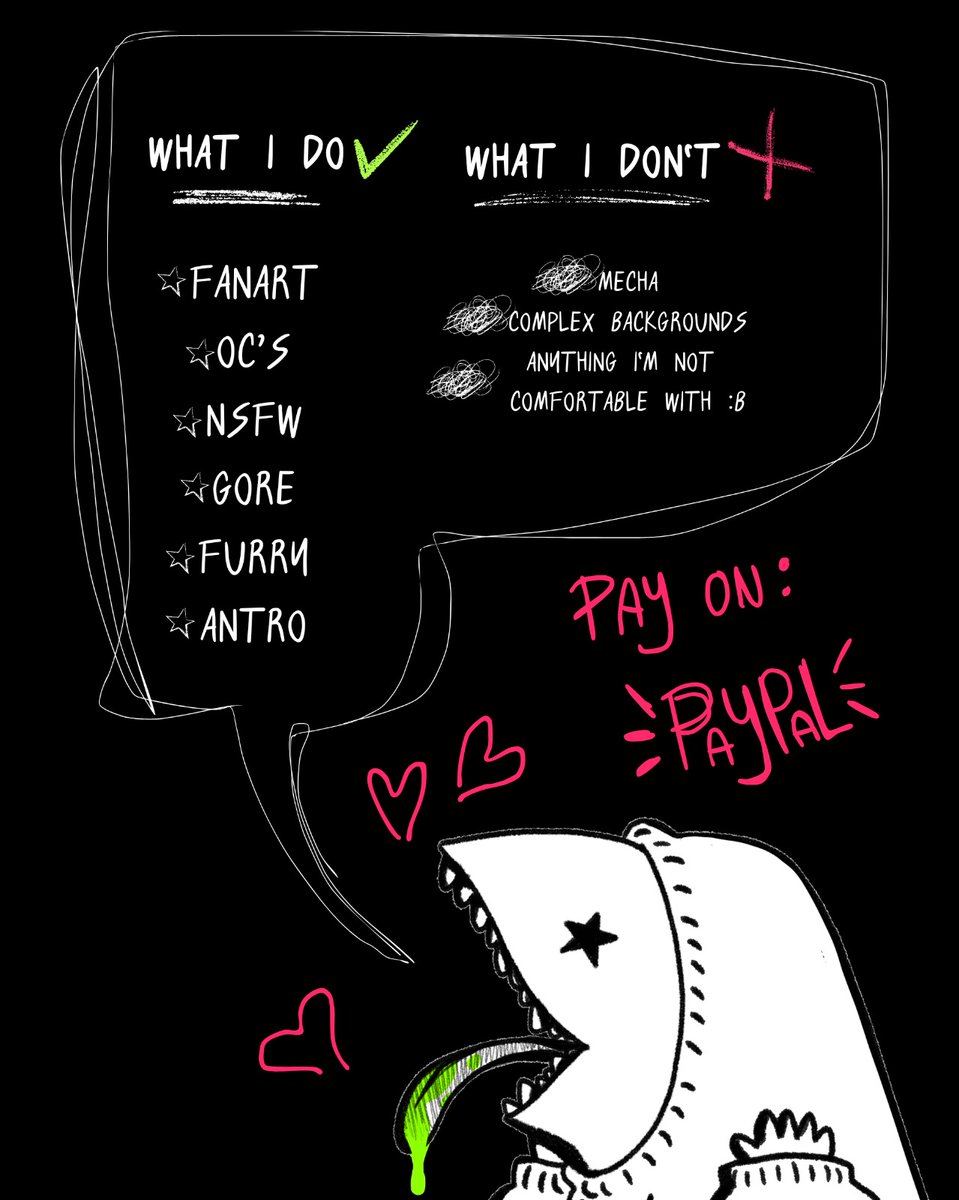 WHAT I DO
FANART
OC'S
NSFW
GORE
FURRY
ANTRO
WHAT I DON'T
MECHA
COMPLEX BACKGROUNDS
ANYTHING I'M NOT
COMFORTABLE WITH :B
PAY ON:
PAYPAL